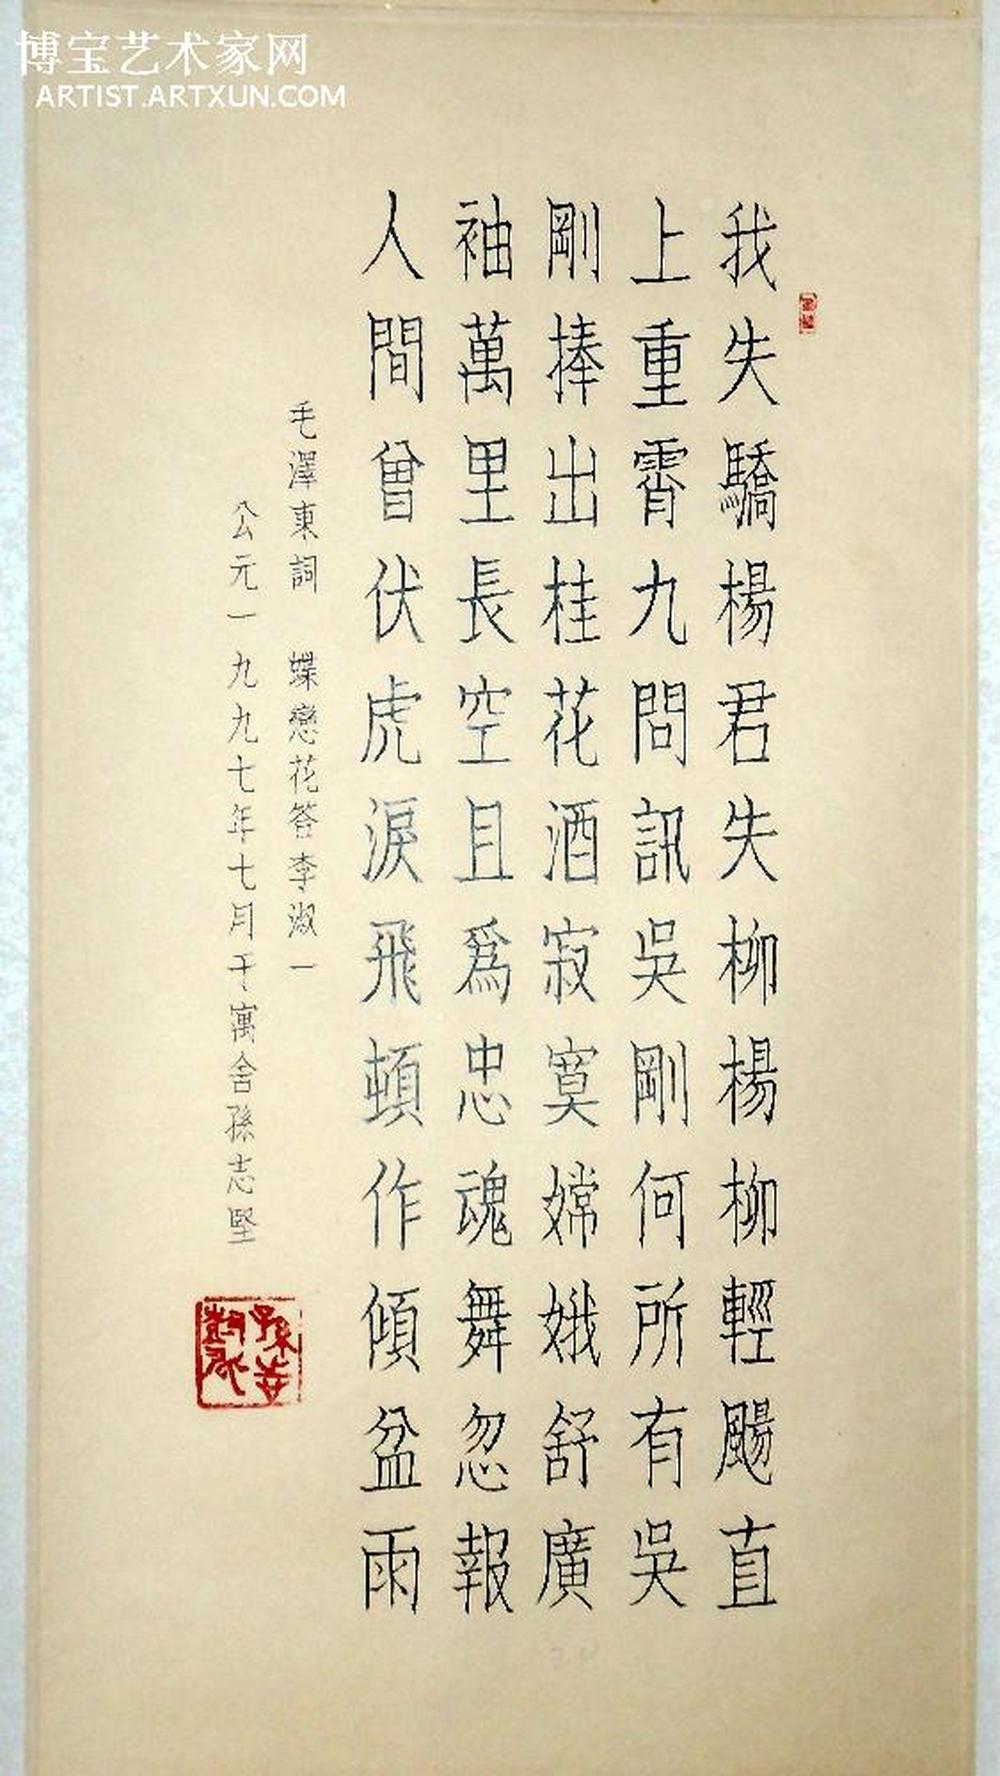 博宝艺术家网
ARTIST.ARTXUN.COM
我失驕楊君失柳楊柳輕颺直
上重霄九問訊吳剛何所有吳
剛捧出桂花酒寂寞嫦娥舒廣
袖萬里長空且為忠魂舞忽報
人間曾伏虎淚飛頓作傾盆雨
毛澤東詞 蝶戀花答李淑一
公元一九九七年七月于寓舍孫志堅